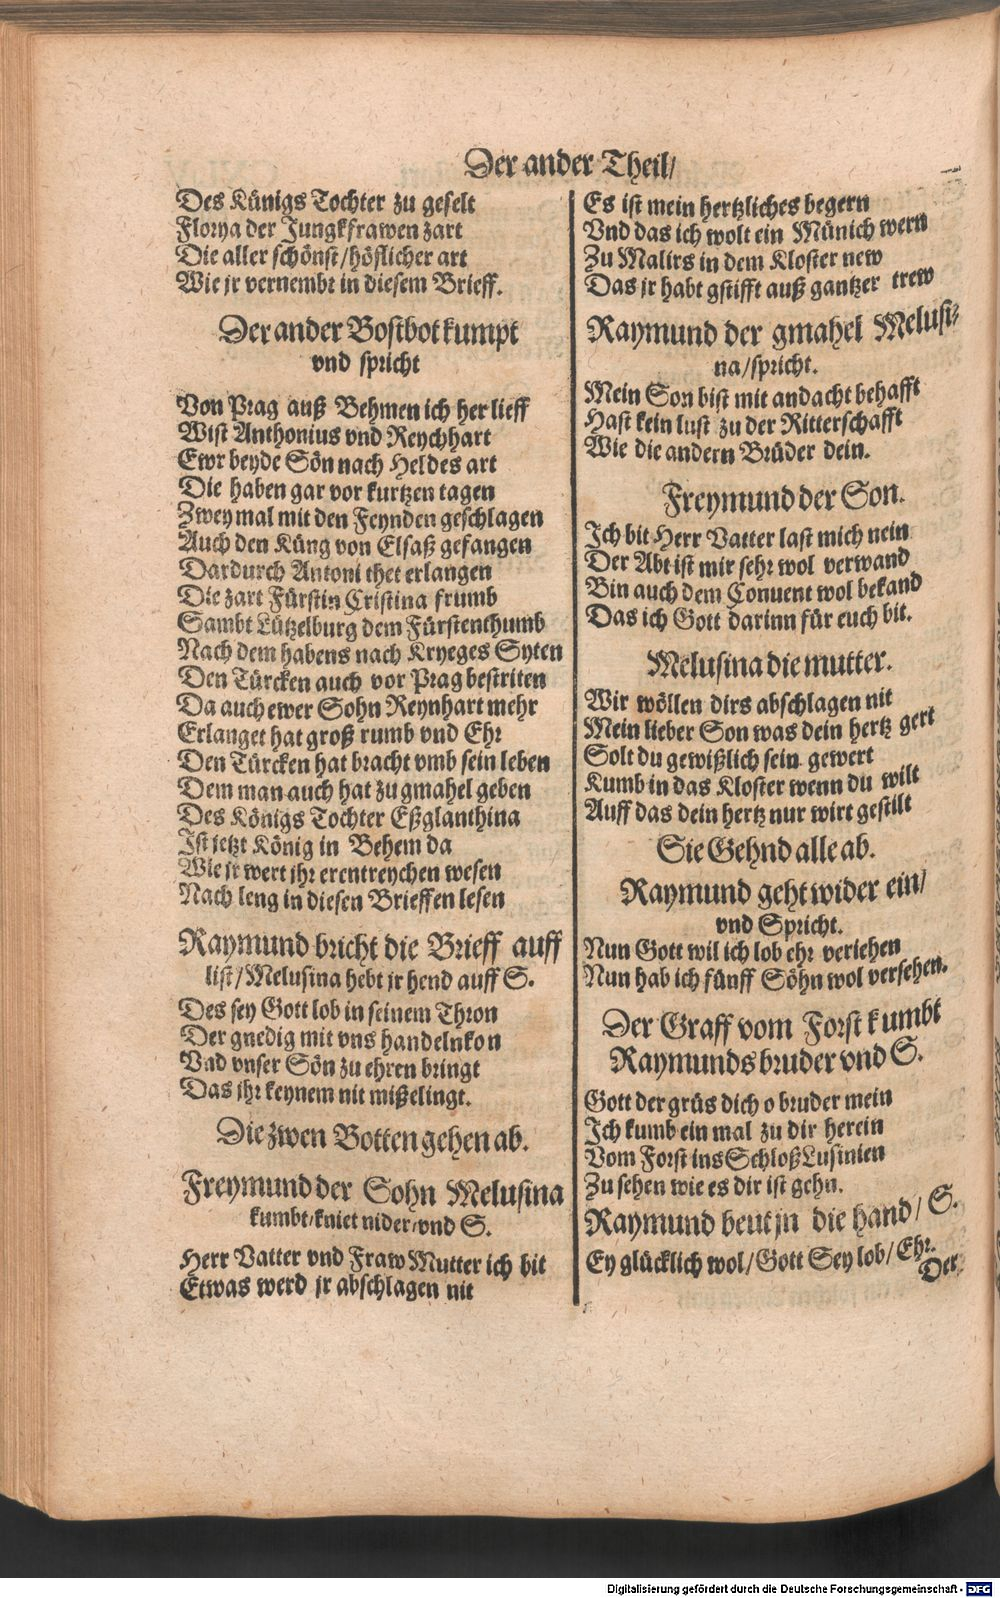 Der ander Theil/
Des Künigs Tochter zu geselt
Florya der Jungkfrawen zart
Die aller schönst/höflicher art
Wie jr vernembt in diesem Brieff.
Der ander Bostbot kumpt
vnd spricht
Von Prag auß Behmen ich her lieff
Wist Anthonius vnd Reychhart
Ewr beyde Sön nach Heldes art
Die haben gar vor kurtzen tagen
Zwey mal mit den Feynden geschlagen
Auch den Küng von Elsaß gefangen
Dardurch Antoni thet erlangen
Die zart Fürstin Cristina frumb
Sambt Lützelburg dem Fürstenthumb
Nach dem habens nach Kryeges Syten
Den Türcken auch vor Prag bestriten
Da auch ewer Sohn Reynhart mehr
Erlanget hat groß rumb vnd Ehr
Den Türcken hat bracht vmb sein leben
Dem man auch hat zu gmahel geben
Des Königs Tochter Eßglanthina
Ist jetzt König in Behem da
Wie jr wert ihr erentreychen wesen
Nach leng in diesen Brieffen lesen
Raymund bricht die Brieff auff
list/Melusina hebt jr hend auff S.
Des sey Gott lob in seinem Thron
Der gnedig mit vns handeln kon
Vnd vnser Sön zu ehren bringt
Das ihr keynem nit mißelingt.
Die zwen Botten gehen ab.
Freymund der Sohn Melusina
kumbt/kniet nider/vnd S.
Herr Vatter vnd Fraw Mutter ich bit
Etwas werd jr abschlagen nit
Es ist mein hertzliches begern
Vnd das ich wolt ein Münich wern
Zu Malirs in dem Kloster new
Das jr habt gstifft auß gantzer trew
Raymund der gmahel Melusi-
na/spricht.
Mein Son bist mit andacht behafft
Hast kein lust zu der Ritterschafft
Wie die andern Brüder dein.
Freymund der Son.
Ich bit Herr Vatter last mich nein
Der Abt ist mir sehr wol verwand
Bin auch dem Conuent wol bekand
Das ich Gott darinn für euch bit.
Melusina die mutter.
Wir wöllen dirs abschlagen nit
Mein lieber Son was dein hertz gert
Solt du gewißlich sein gewert
Kumb in das Kloster wenn du wilt
Auff das dein hertz nur wirt gestilt
Sie Gehnd alle ab.
Raymund geht wider ein/
vnd Spricht.
Nun Gott wil ich lob ehr veriehen
Nun hab ich fünff Söhn wol versehen.
Der Graff vom Forst kumbt
Raymunds bruder vnd S.
Gott der grüs dich o bruder mein
Ich kumb ein mal zu dir herein
Vom Forst ins Schloß Lusinien
Zu sehen wie es dir ist gehn.
Raymund beut jn die hand/ S.
Ey glücklich wol/Gott Sey lob/ Ehr.
Der
Digitalisierung gefördert durch die Deutsche Forschungsgemeinschaft - DFG